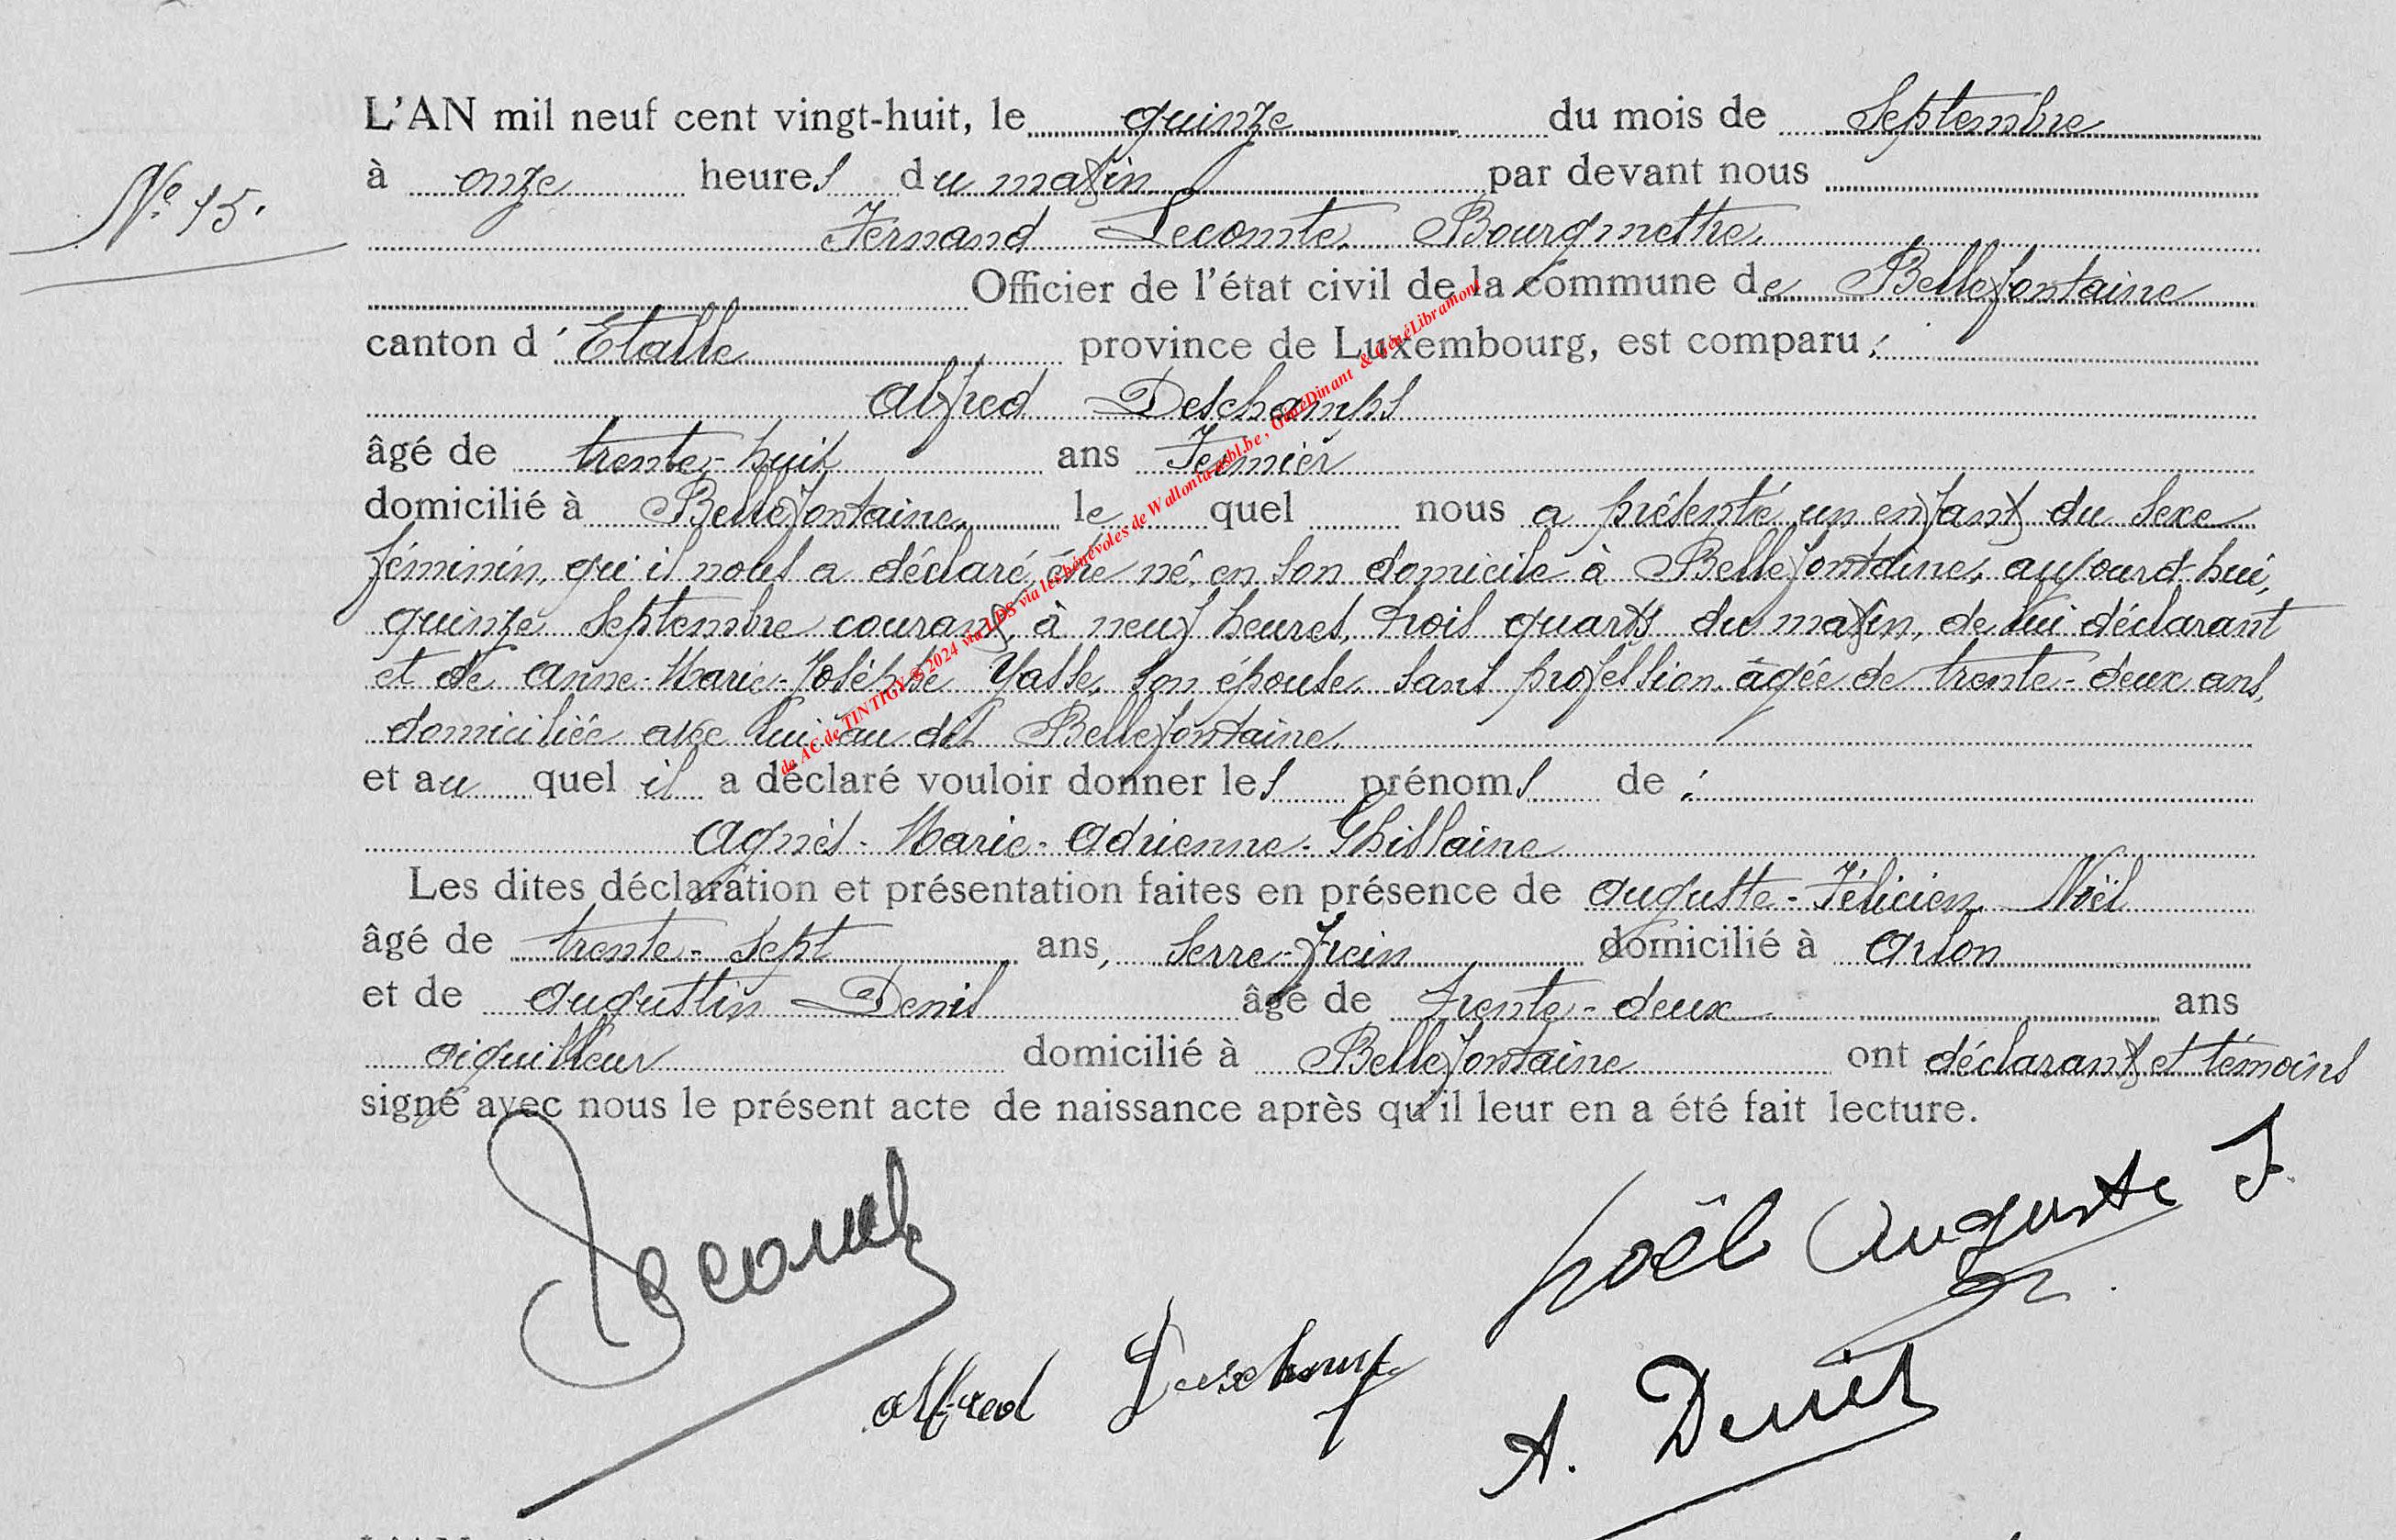 L'AN mil neuf cent vingt-huit, le quinze du mois de Septembre
à onze heures du matin par devant nous
N° 15.
Fernand Lecomte, Bourgmettre,
Officier de l'état civil de la commune de Bellefontaine
canton d'Etalle province de Luxembourg, est comparu :
Alfred Deschamps
âgé de trente-huit ans Fermier
domicilié à Bellefontaine, lequel nous a présenté un enfant du sexe
féminin, qu'il nous a déclaré être né, en son domicile à Bellefontaine, aujourd'hui,
quinze Septembre courant, à neuf heures, trois quarts du matin, de lui déclarant
et de Anne-Marie-Josèphe Yasse, son épouse, sans profession, âgée de trente-deux ans,
domiciliée avec lui au dit Bellefontaine,
et auquel il a déclaré vouloir donner les prénoms de :
Agnès-Marie-Adrienne-Ghislaine
Les dites déclaration et présentation faites en présence de Auguste-Félicien Noël
âgé de trente-sept ans, Serre-frein domicilié à Arlon
et de Augustin Denis âgé de trente-deux ans
aiguilleur domicilié à Bellefontaine ont déclarant et témoins
signé avec nous le présent acte de naissance après qu'il leur en a été fait lecture.
Lecomte
Noël Auguste F.
Alfred Deschamps
A. Denis
de AC de TINTIGY © 2024 via LDS via les bénévoles de Wallonia-asbl.be, GénéDinant & GénéLibramont